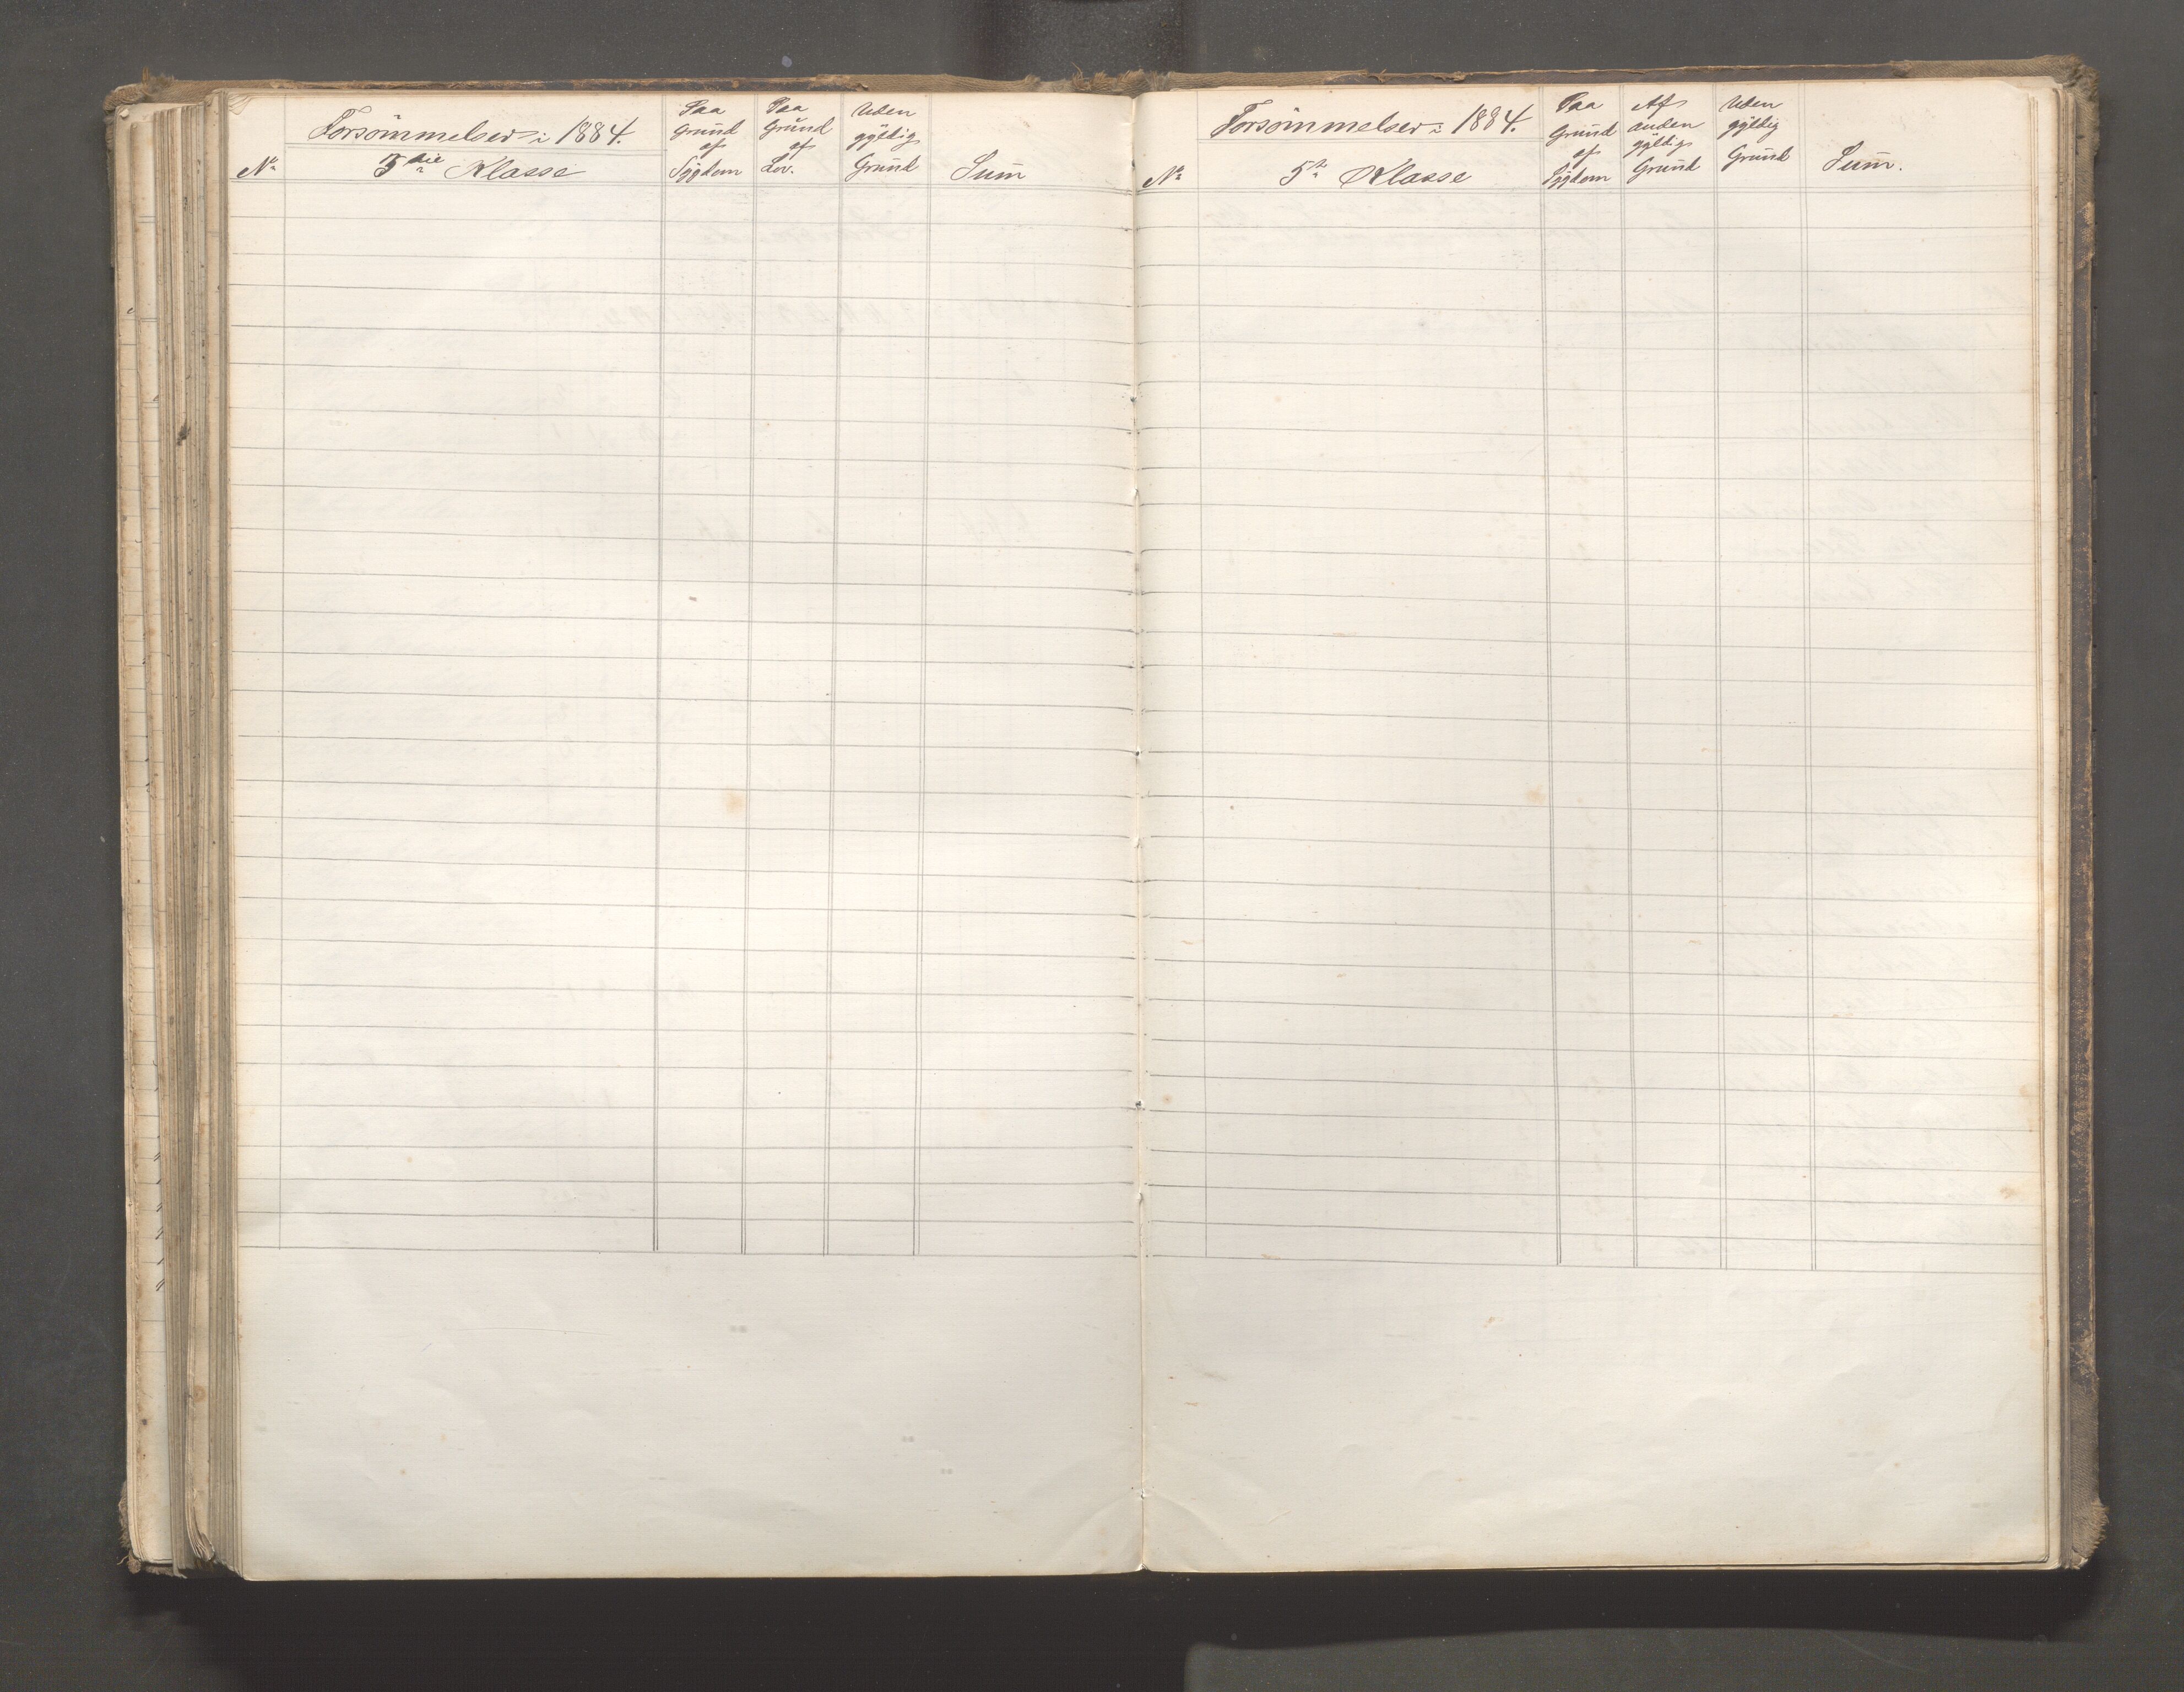 Forsömmelser i 1884.
Paa Grund af Sygdom
Paa Grund af Lov.
Uden gyldig Grund
Sum
No
3die Klasse
Forsömmelser i 1884.
Paa Grund af Sygdom
Af anden gyldig Grund
Uden gyldig Grund
Sum.
No
5te Klasse